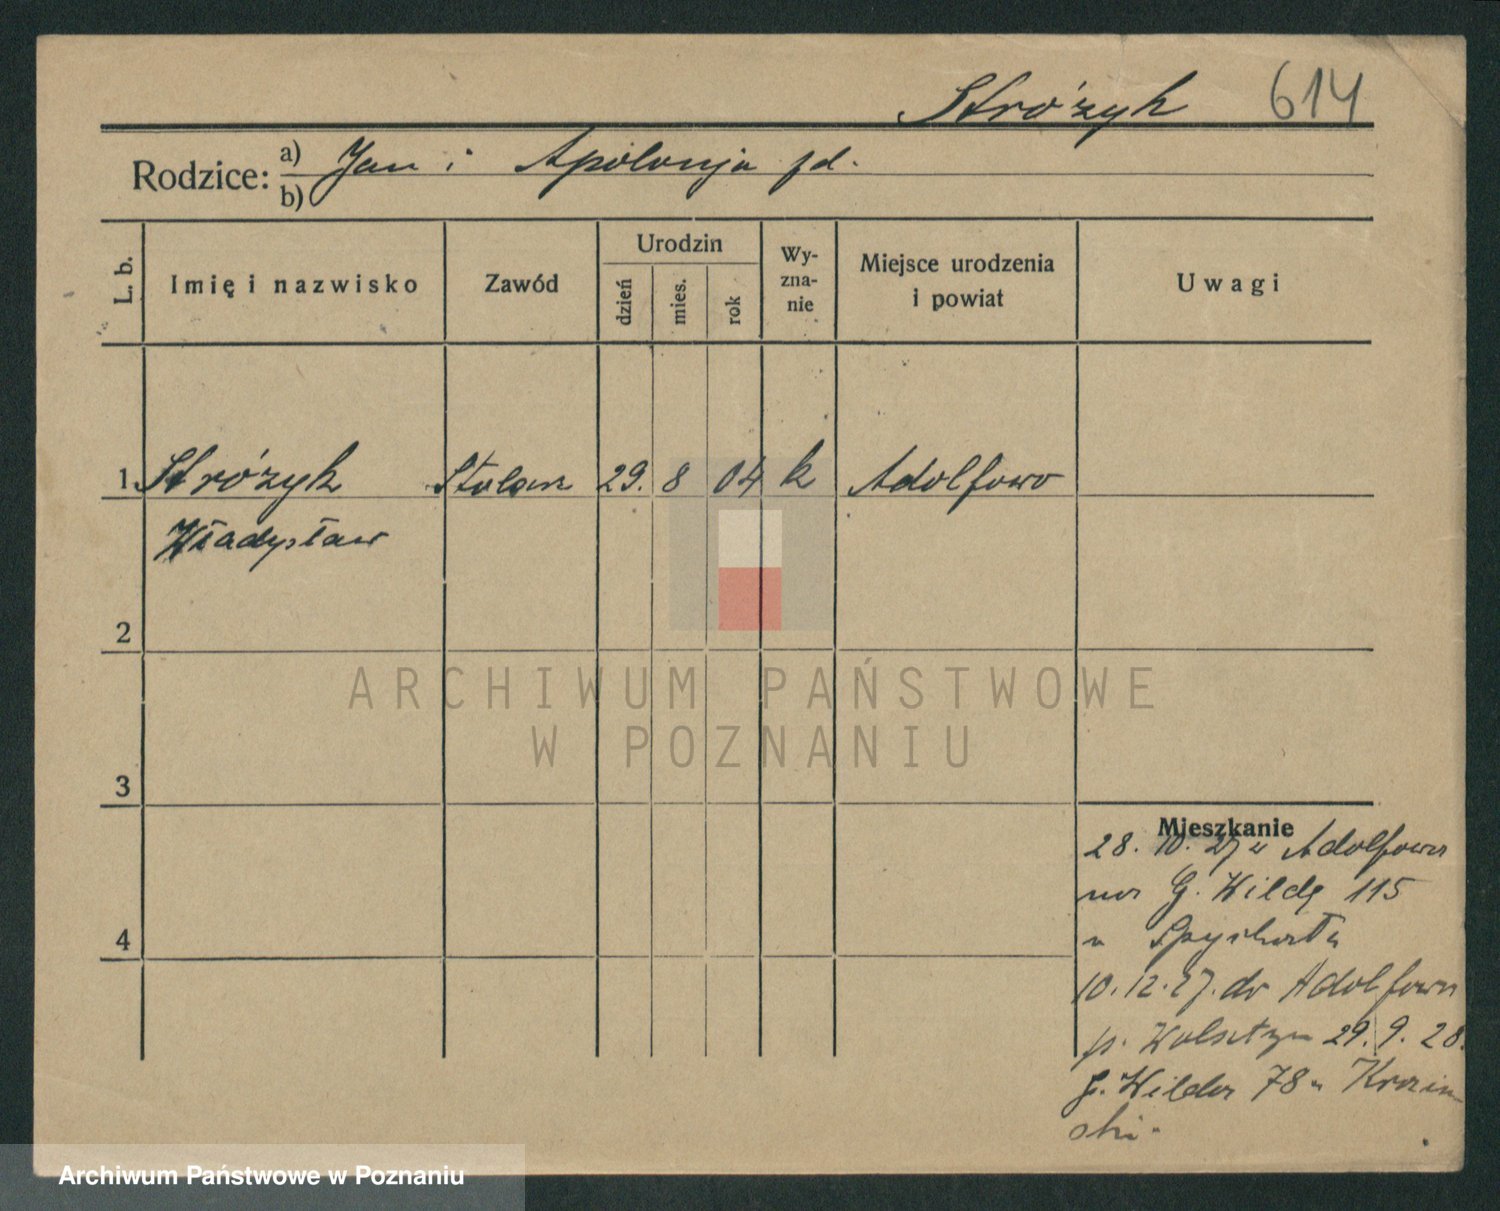 Stróżyk 614
Rodzice: a) Jan i Apolonja
b)
L. b. Imię i nazwisko Zawód Urodzin dzień mies. rok Wy-zna-nie Miejsce urodzenia i powiat Uwagi
1 Stróżyk Stolarz 29. 8 04 k Adolfowo
Władysław
2
3
4
ARCHIWUM PAŃSTWOWE
W POZNANIU
Mieszkanie
28. 10. 27 z Adolfowa
na G. Wildę 115
u
10. 12. 27. do Adolfowa
p. Wolsztyn 29. 9. 28.
G. Wilda 78 u
ski.
Archiwum Państwowe w Poznaniu